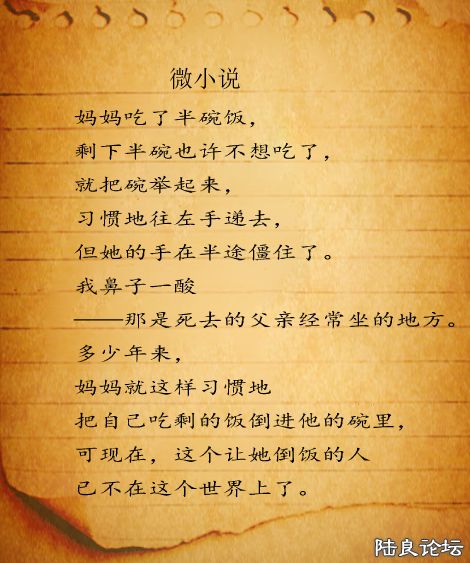 微小说
妈妈吃了半碗饭，
剩下半碗也许不想吃了，
就把碗举起来，
习惯地往左手递去，
但她的手在半途僵住了。
我鼻子一酸
——那是死去的父亲经常坐的地方。
多少年来，
妈妈就这样习惯地
把自己吃剩的饭倒进他的碗里，
可现在，这个让她倒饭的人
已不在这个世界上了。
陆良论坛